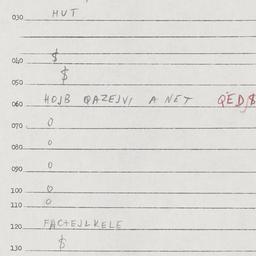 030 HUT
040 $
050 $
060 HOJB QAZEJVI A NET QED$
070 0
080 0
090 0
100 0
110 0
120 FAC+EJLKELE
130 $